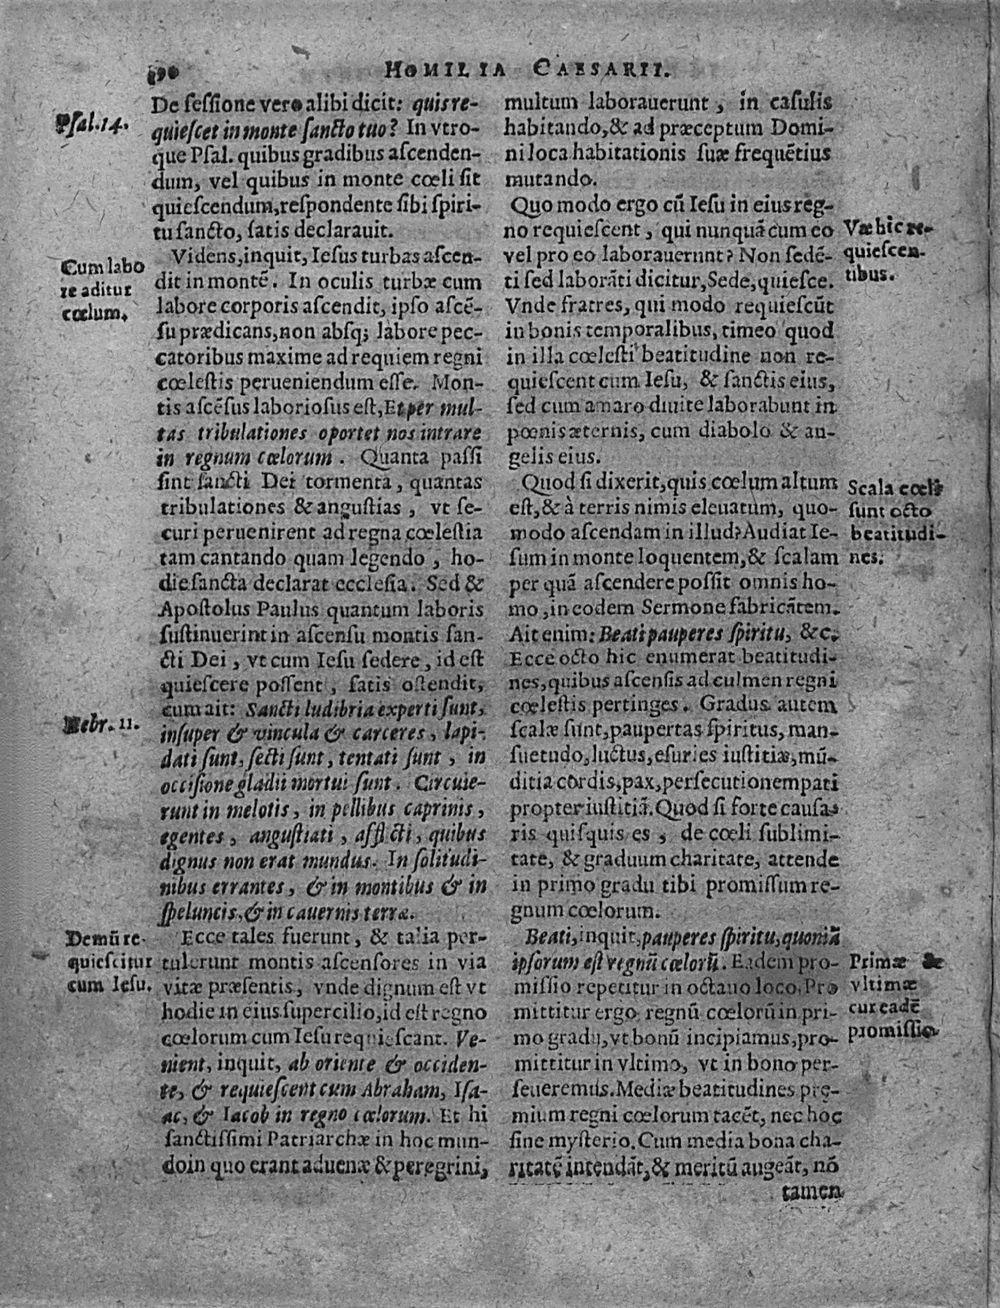 HOMILIA CAESARII.
De sessione vero alibi dicit: quis re-
quiescet in monte sancto tuo? In vtro-
que Psal. quibus gradibus ascenden-
dum, vel quibus in monte cœli sit
quiescendum, respondente sibi spiri-
tu sancto, satis declarauit.
Videns, inquit, Iesus turbas ascen-
dit in montē. In oculis turbæ cum
labore corporis ascendit, ipso ascē-
su prædicans, non absq; labore pec-
catoribus maxime ad requiem regni
cœlestis perueniendum esse. Mon-
tis ascēsus laboriosus est, Et per mul-
tas tribulationes oportet nos intrare
in regnum cœlorum. Quanta passi
sint sancti Dei tormenta, quantas
tribulationes & angustias, vt se-
curi peruenirent ad regna cœlestia
tam cantando quam legendo, ho-
die sancta declarat ecclesia. Sed &
Apostolus Paulus quantum laboris
sustinuerint in ascensu montis san-
cti Dei, vt cum Iesu sedere, id est
quiescere possent, satis ostendit,
cum ait: Sancti ludibria experti sunt,
insuper & vincula & carceres, lapi-
dati sunt, secti sunt, tentati sunt, in
occisione gladii mortui sunt. Circuie-
runt in melotis, in pellibus caprinis,
egentes, angustiati, afflicti, quibus
dignus non erat mundus. In solitudi-
nibus errantes, & in montibus & in
speluncis, & in cauernis terræ.
Ecce tales fuerunt, & talia per-
tulerunt montis ascensores in via
vitæ præsentis, vnde dignum est vt
hodie in eius supercilio, id est regno
cœlorum cum Iesu requiescant. Ve-
nient, inquit, ab oriente & occiden-
te, & requiescent cum Abraham, Isa-
ac, & Iacob in regno cœlorum. Et hi
sanctissimi Patriarchæ in hoc mun-
do in quo erant aduenæ & peregrini,
Psal. 14.
Cum labo
re aditur
cœlum.
Hebr. 11.
Demū re-
quiescitur
cum Iesu.
multum laborauerunt, in casulis
habitando, & ad præceptum Domi-
ni loca habitationis suæ frequētius
mutando.
Quo modo ergo cū Iesu in eius reg-
no requiescent, qui nunquā cum eo
vel pro eo laborauerunt? Non sedē-
ti sed laborāti dicitur, Sede, quiesce.
Vnde fratres, qui modo requiescūt
in bonis temporalibus, timeo quod
in illa cœlesti beatitudine non re-
quiescent cum Iesu, & sanctis eius,
sed cum amaro diuite laborabunt in
pœnis æternis, cum diabolo & an-
gelis eius.
Quod si dixerit, quis cœlum altum
est, & à terris nimis eleuatum, quo-
modo ascendam in illud? Audiat Ie-
sum in monte loquentem, & scalam
per quā ascendere possit omnis ho-
mo, in eodem Sermone fabricātem.
Ait enim: Beati pauperes spiritu, &c.
Ecce octo hic enumerat beatitudi-
nes, quibus ascensis ad culmen regni
cœlestis pertinges. Gradus autem
scalæ sunt, paupertas spiritus, man-
suetudo, luctus, esuries iustitiæ, mū-
ditia cordis, pax, persecutionem pati
propter iustitiā. Quod si forte causa-
ris quisquis es, de cœli sublimi-
tate, & graduum charitate, attende
in primo gradu tibi promissum re-
gnum cœlorum.
Beati, inquit, pauperes spiritu, quoniā
ipsorum est regnū cœlorū. Eadem pro-
missio repetitur in octauo loco. Pro
mittitur ergo regnū cœlorū in pri-
mo gradu, vt bonū incipiamus, pro-
mittitur in vltimo, vt in bono per-
seueremus. Mediæ beatitudines pre-
mium regni cœlorum tacēt, nec hoc
sine mysterio. Cum media bona cha-
ritatē intendāt, & meritū augeāt, nō
tamen
Væ hic re-
quiescen-
tibus.
Scala cœli
sunt octo
beatitudi-
nes.
Primæ &
vltimæ
cur eadē
promissio.